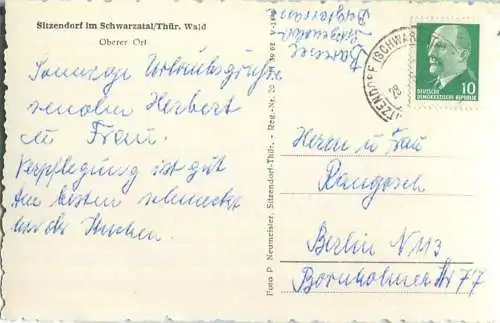 Sitzendorf im Schwarzatal/Thür. Wald
Oberer Ort
Sonnige Urlaubsgrüße
senden Herbert
u Frau.
Verpflegung ist gut
Am besten schmeckt
der Kuchen.
Foto P. Neumeister, Sitzendorf-Thür. - Reg.-Nr.
SITZENDORF (SCHWAR
DEUTSCHE
DEMOKRATISCHE REPUBLIK
10
Herrn u Frau
Rangosch
Berlin N 113
Bornholmer Str 77